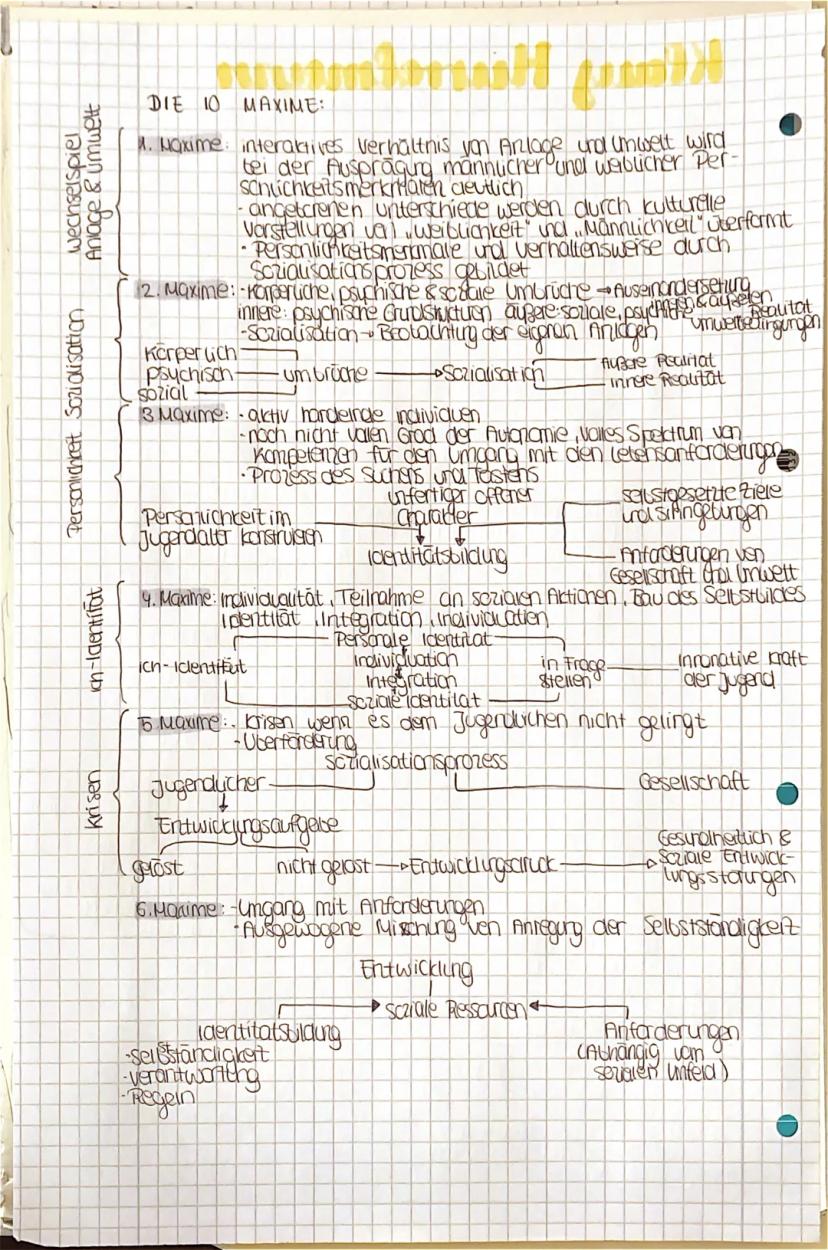 Klaus Hurrelmann
DIE 10 MAXIME:
Wechselspiel
Anlage & Umwelt
1. Maxime: interaktives Verhältnis von Anlage und Umwelt wird
bei der Ausprägung männlicher und weiblicher Per-
sönlichkeitsmerkmalen deutlich
- angeborenen unterschiede werden durch kulturelle
Vorstellungen von „Weiblichkeit" und „Männlichkeit" überformt
- Persönlichkeitsmerkmale und Verhaltensweise durch
Sozialisationsprozess gebildet
Sozialisation
2. Maxime: - körperliche, psychische & soziale Umbrüche → Auseinandersetzung
inneren & äußeren
Realität
innere: psychische Grundstrukturen äußere: soziale, psychische Umweltbedingungen
- Sozialisation → Beobachtung der eigenen Anlagen
körperlich
psychisch
sozial
umbrüche
Sozialisation
äußere Realität
innere Realität
Persönlichkeit
3 Maxime: - aktiv handelnde individuen
- noch nicht vollen Grad der Autonomie, volles Spektrum von
Kompetenzen für den Umgang mit den Lebensanforderungen
- Prozess des Suchens und Tastens
unfertiger offener
Charakter
Persönlichkeit im
Jugendalter konstruieren
Identitätsbildung
selbstgesetzte Ziele
und
Anforderungen von
Gesellschaft und Umwelt
Ich-Identität
4. Maxime: Individualität, Teilnahme an sozialen Aktionen, Bau des Selbstbildes
Identität, Integration, Individuation
Personale Identität
ich-identität
Individuation
Integration
soziale Identität
in Frage
stellen
Innovative Kraft
der Jugend
Krisen
5 Maxime: - Krisen wenn es dem Jugendlichen nicht gelingt
- Überforderung
Sozialisationsprozess
Jugendlicher
Gesellschaft
Entwicklungsaufgabe
gelöst
nicht gelöst → Entwicklungsdruck
Gesundheitlich &
Soziale Entwick-
lungsstörungen
6. Maxime: - Umgang mit Anforderungen
- Ausgewogene Mischung von Anregung der Selbstständigkeit
Entwicklung
soziale Ressourcen
Identitätsbildung
- selbständigkeit
- verantwortung
- Regeln
Anforderungen
(Abhängig vom
sozialen Umfeld)